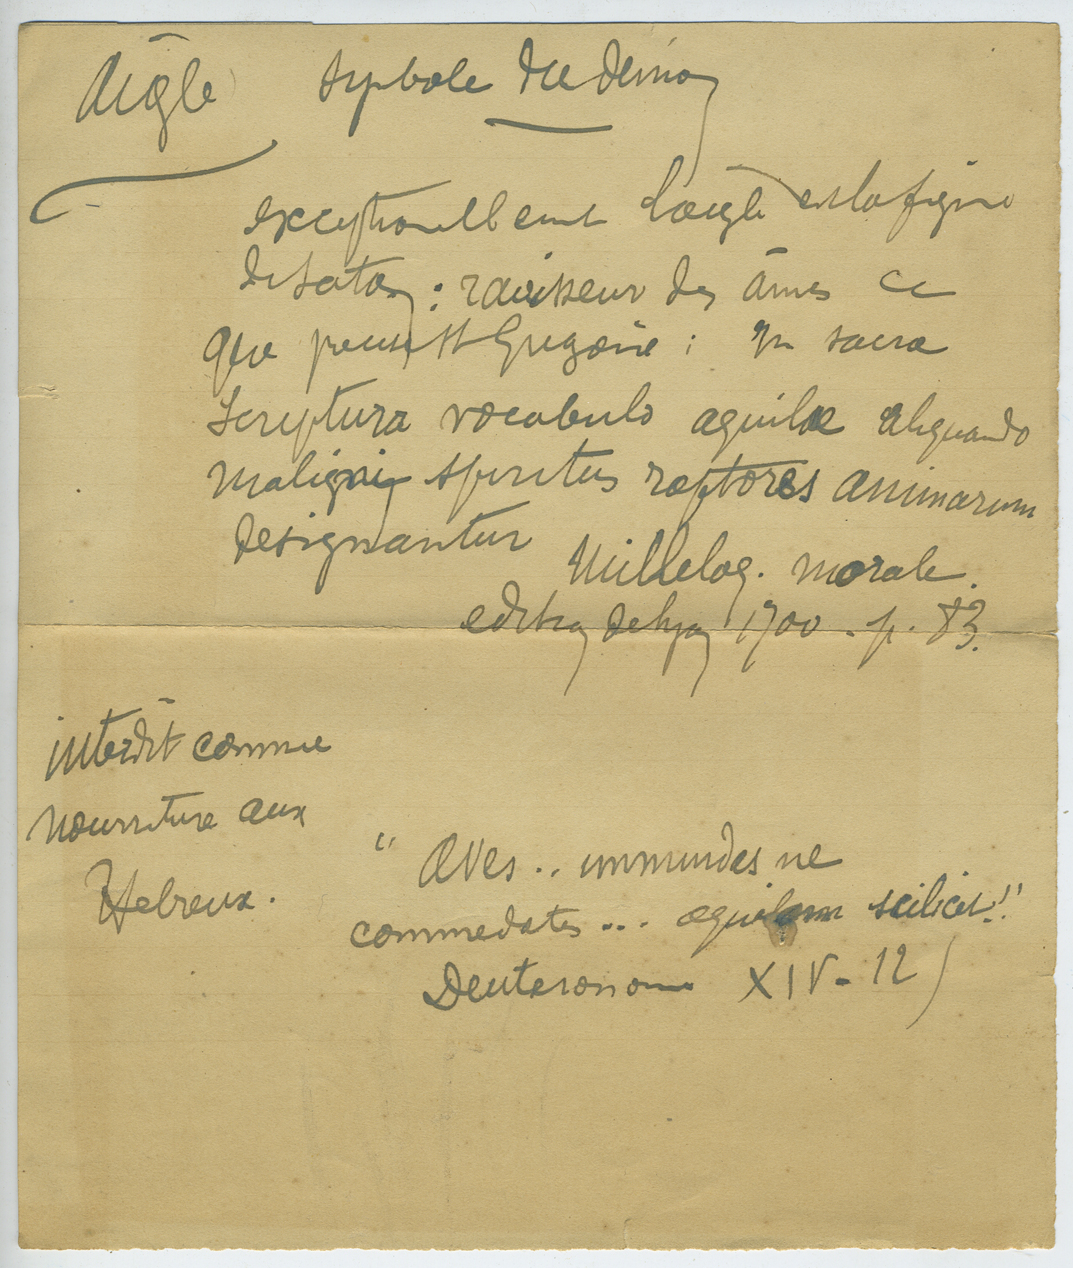 Aigle symbole du démon
exceptionellement l'aigle est la figure
de Satan : ravisseur des âmes ce
que pense St Grégoire : In sacra
Scriptura vocabulo aquilae aliquando
maligni spiritus raptores animarum
designantur
Milleloq. morale.
edition de Lyon 1700 . p. 83.
interdit comme
nourriture aux
Hebreux.
" Aves .. immundas ne
commedatis ... aquilam scilicet.!"
Deuteronome XIV - 12)